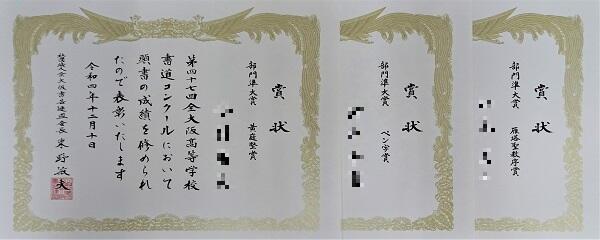 賞状
部門準大賞 黄庭堅賞
第四十七回全大阪高等学校
書道コンクールにおいて
頭書の成績を修められ
たので表彰いたします
令和四年十二月十日
賞状
部門準大賞 ペン字賞
賞状
部門準大賞 雁塔聖教序賞